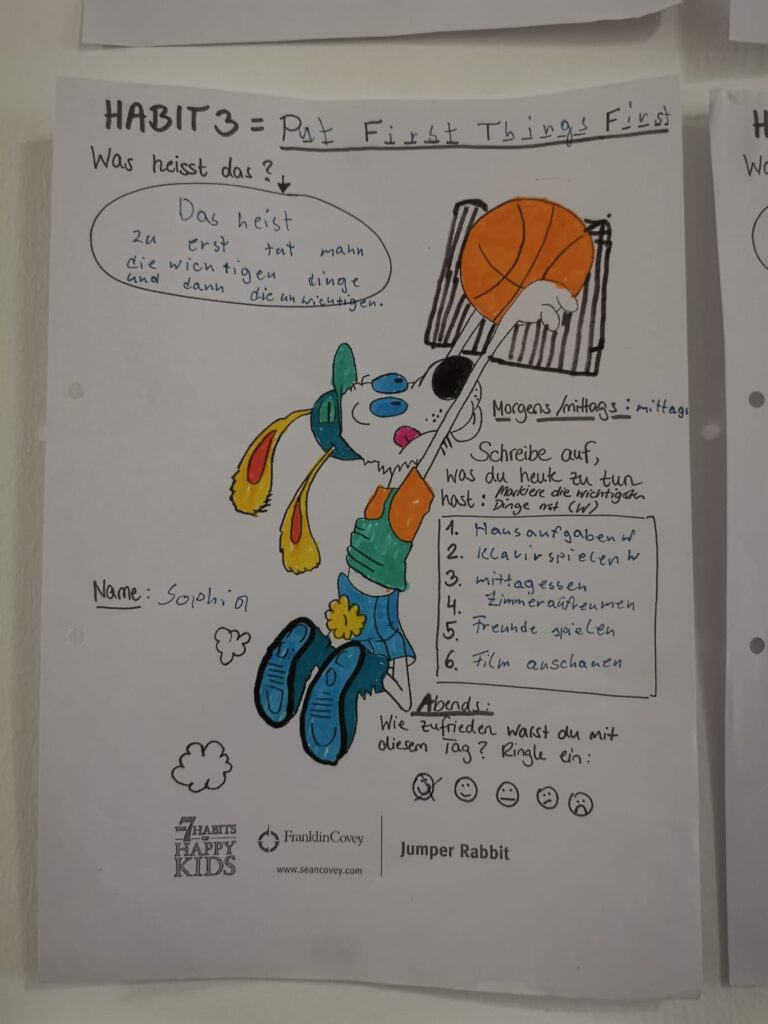 HABIT 3 = Put First Things First
Was heisst das?
Das heist
zu erst tut mahn
die wichtigen dinge
und dann die un wichtigen.
Morgens/mittags: mittags
Schreibe auf,
was du heute zu tun
hast: Markiere die wichtigsten
Dinge mit (W)
1. Hausaufgaben W
2. Klavirspielen W
3. mittagessen
4. Zimmeraufreumen
5. Freunde spielen
6. Film anschauen
Name: Sophia
Abends:
Wie zufrieden warst du mit
diesem Tag? Ringle ein:
THE 7 HABITS
OF HAPPY
KIDS
FranklinCovey
www.seancovey.com
Jumper Rabbit
H
Wa